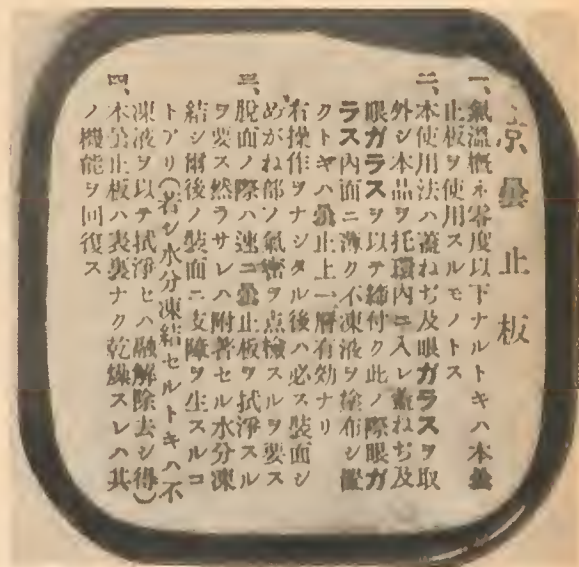 京曇止板
一、氣溫概ネ零度以下ナルトキハ本曇
止板ヲ使用スルモノトス
二、本使用法ハ蓋ねぢ及眼ガラスヲ取
外シ本品ヲ托環内ニ入レ蓋ねぢ及
眼ガラスヲ以テ締付ク此ノ際眼ガ
ラス内面ニ薄ク不凍液ヲ塗布シ置
クトキハ曇止上一層有効ナリ
右操作ヲナシタル後ハ必ス裝面シ
めがね部ノ氣密ヲ点檢スルヲ要ス
三、脫面ノ際ハ速ニ曇止板ヲ拭淨スル
ヲ要ス然ラサレハ附著セル水分凍
結シ爾後ノ裝面ニ支障ヲ生スルコ
トアリ(若シ水分凍結セルトキハ不
凍液ヲ以テ拭淨セハ融解除去シ得)
四、本曇止板ハ表裏ナク乾燥スレハ其
ノ機能ヲ回復ス